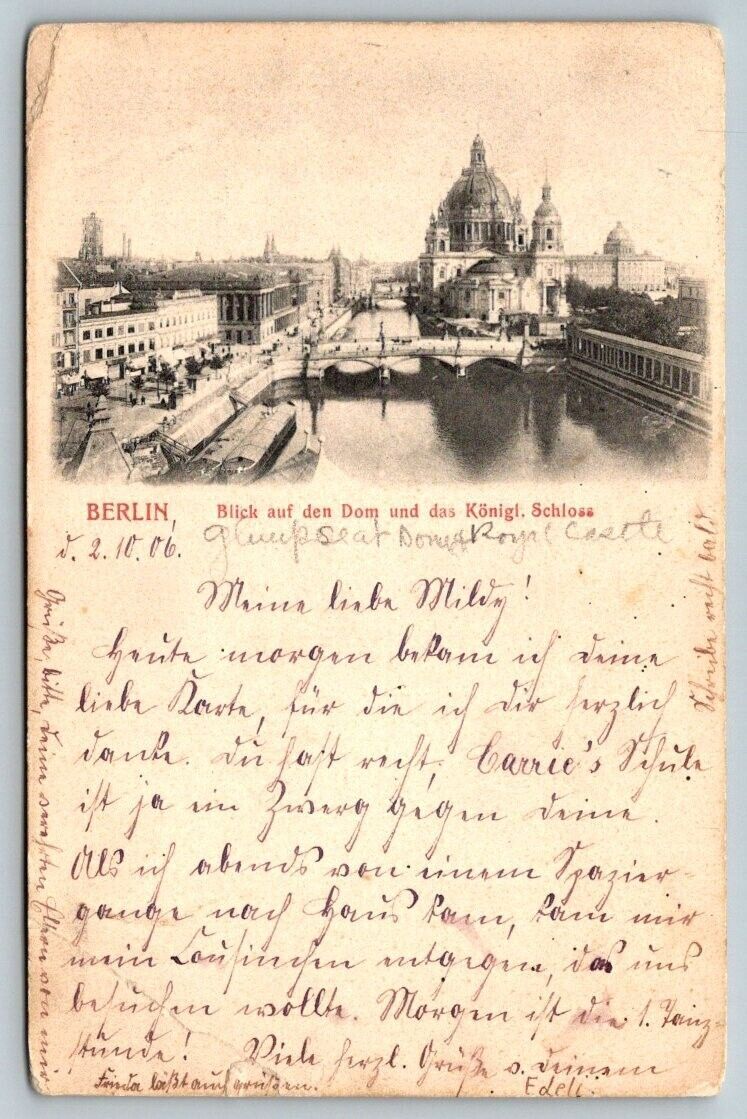 BERLIN Blick auf den Dom und das Königl. Schloss
d. 2.10.06.
Dom & Royal Castle
Meine liebe Mildy!
Heute morgen bekam ich deine
liebe Karte, für die ich dir herzlich
danke. Du hast recht, Carrie's Schule
ist ja ein Zwerg gegen deine.
Als ich abends von einem Spazier-
gange nach Haus kam, kam mir
mein Cousinchen entgegen, das uns
besuchen wollte. Morgen ist die 1. Tanz-
stunde! Viele herzl. Grüße v. deinem
Edeli.
Frieda läßt auch grüßen.
Grüße, bitte, deine verehrten Eltern von mir
Schreibe recht bald